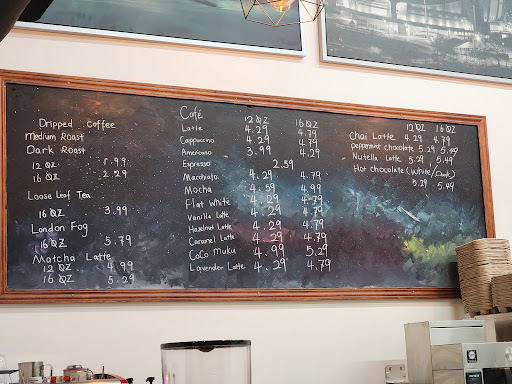 Dripped Coffee
Medium Roast
Dark Roast
12 OZ 1.99
16 OZ 2.29
Loose Leaf Tea
16 OZ 3.99
London Fog
16 OZ 5.79
Matcha Latte
12 OZ 4.99
16 OZ 5.29
Café 12 OZ 16 OZ
Latte 4.29 4.79
Cappuccino 4.29 4.79
Americano 3.99 4.29
Espresso 2.59
Macchiato 4.29 4.79
Mocha 4.59 4.99
Flat White 4.29 4.79
Vanilla Latte 4.29 4.79
Hazelnut Latte 4.29 4.79
Caramel Latte 4.29 4.79
CoCo Muku 4.99 5.29
Lavender Latte 4.29 4.79
12 OZ 16 OZ
Chai Latte 4.29 4.79
peppermint chocolate 5.29 5.49
Nutella Latte 5.29 5.49
Hot chocolate (White/Dark)
5.29 5.49